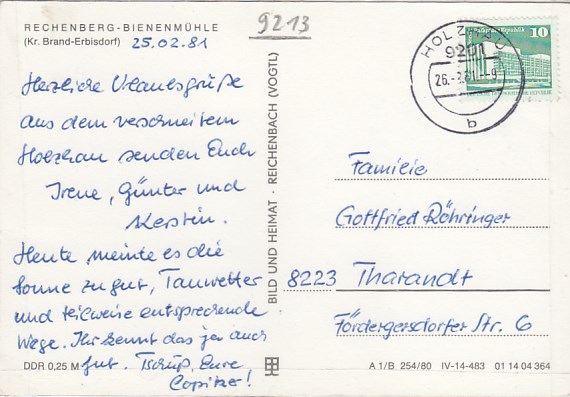 RECHENBERG-BIENENMÜHLE
(Kr. Brand-Erbisdorf)
25.02.81
9213
Herzliche Urlaubsgrüße
aus dem verschneitem
Holzhau senden Euch
Irene, Günter und
Kerstin.
Heute meinte es die
Sonne zu gut, Tauwetter
und teilweise entsprechende
Wege. Ihr kennt das ja auch
gut. Tschüß, Eure
BILD UND HEIMAT · REICHENBACH (VOGTL)
DDR 0,25 M
10
HOLZHAU
9201
26.-2.81.-9
b
Familie
Gottfried Röhringer
8223 Tharandt
Fördergersdorfer Str. 6
A 1/B 254/80 IV-14-483 01 14 04 364